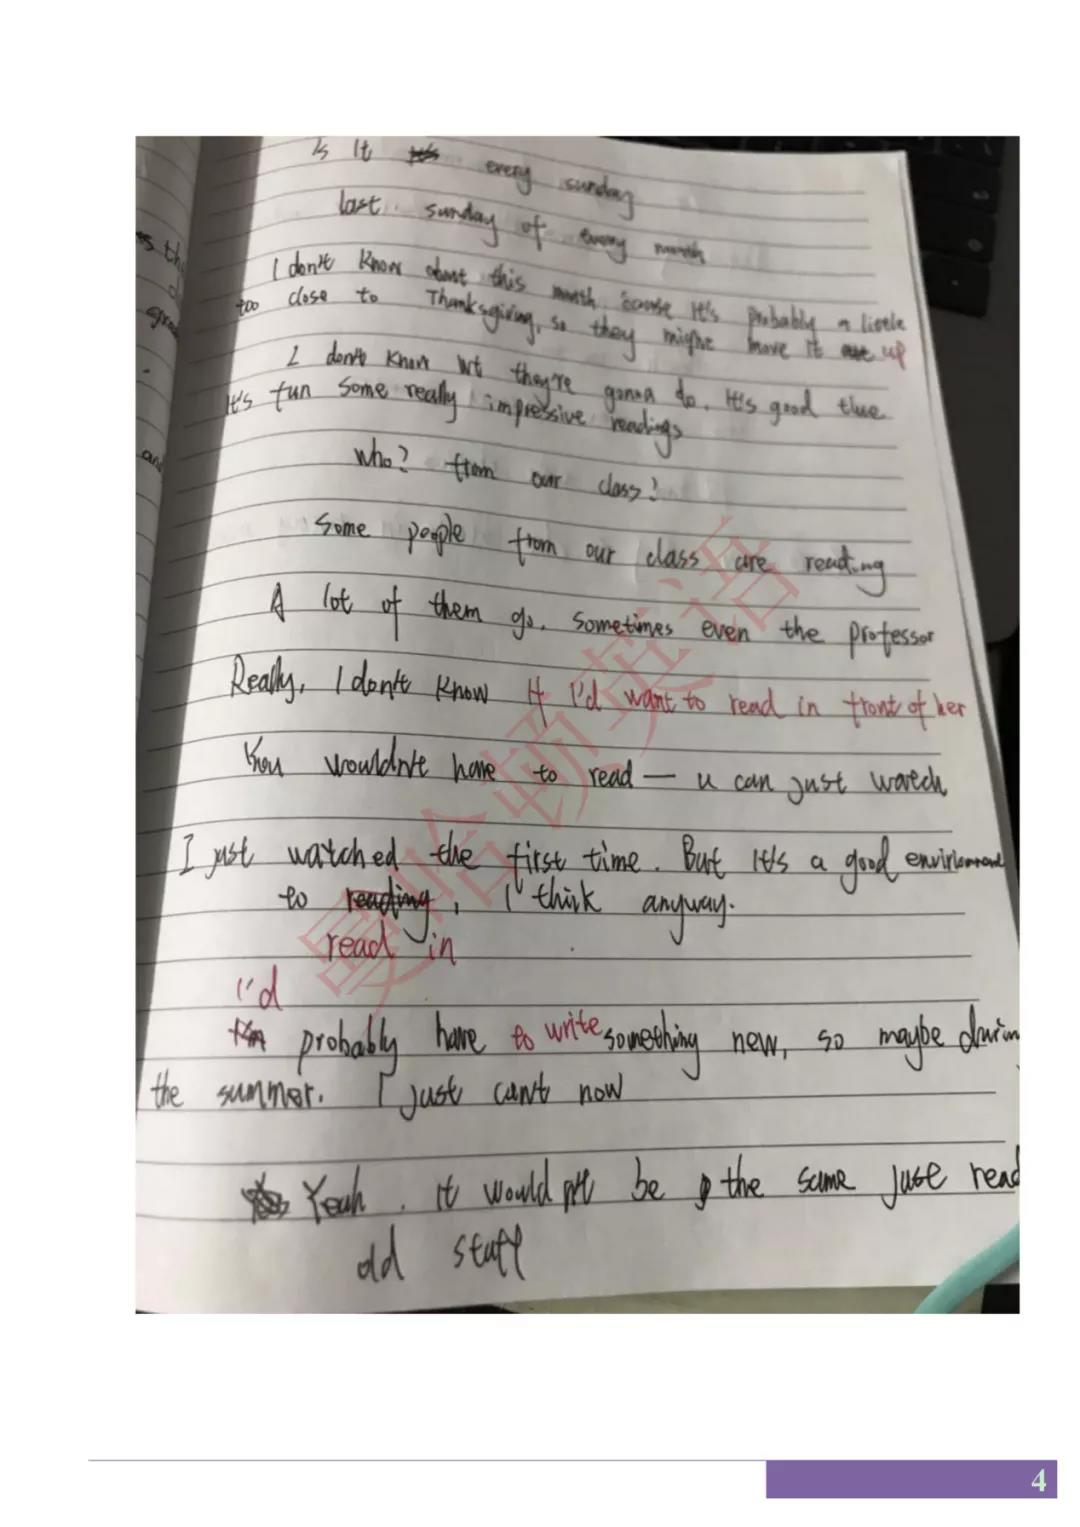 Is It it's every sunday
last sunday of every month
I don't know about this month cause It's probably a little
too close to Thanksgiving, so they might move it up
I don't know wt they're gonna do. It's good thue
It's fun some really impressive readings
who? from our class?
Some people from our class are reading
A lot of them go. Sometimes even the professor
Really, I don't know if I'd want to read in front of her
You wouldn't have to read — u can just watch
I just watched the first time. But It's a good
to reading, I think anyway.
read in
I'd
probably have to write something new, so maybe durin
the summer. I just can't now
Yeah. it would be the same just read
old stuff
曼哈顿英语
s thi
and
4